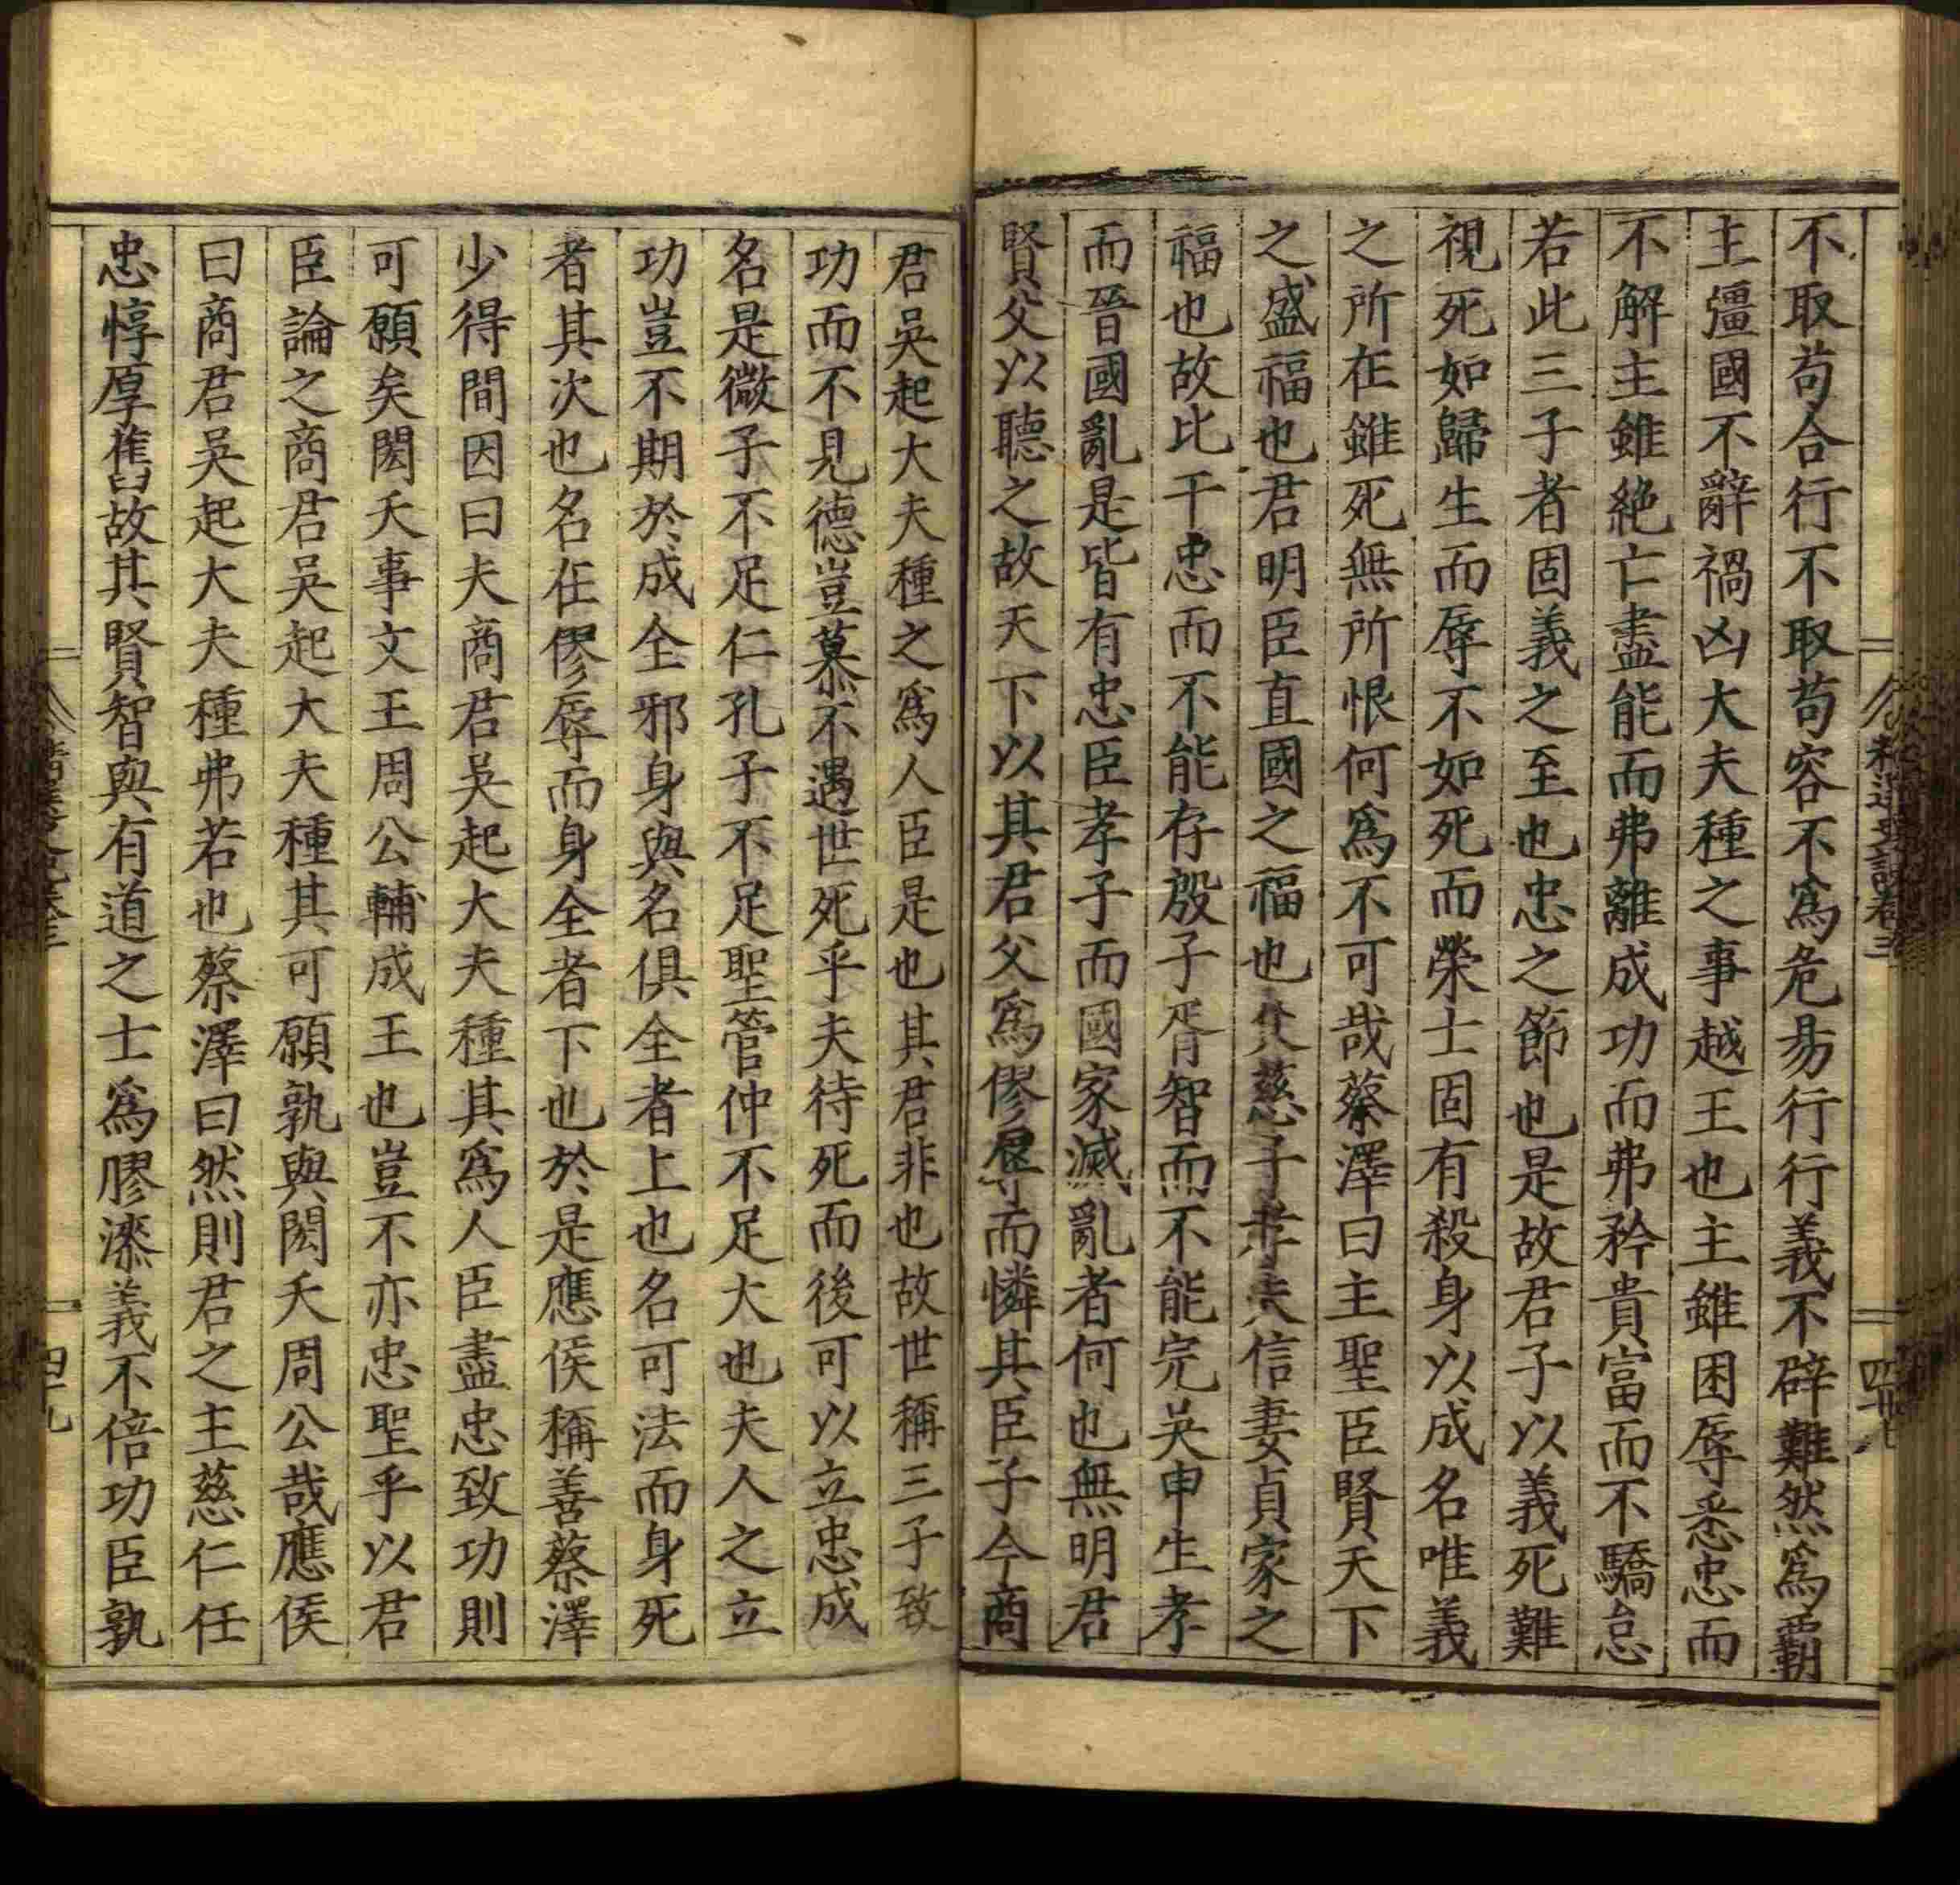 不取苟合行不取苟容不爲危易行行義不辟難然爲霸
主彊國不辭禍凶大夫種之事越王也主雖困辱悉忠而
不解主雖絶亡盡能而弗離成功而弗矜貴富而不驕怠
若此三子者固義之至也忠之節也是故君子以義死難
視死如歸生而辱不如死而榮士固有殺身以成名唯義
之所在雖死無所恨何爲不可哉蔡澤曰主聖臣賢天下
之盛福也君明臣直國之福也父慈子孝夫信妻貞家之
福也故比干忠而不能存殷子胥智而不能完吳申生孝
而晉國亂是皆有忠臣孝子而國家滅亂者何也無明君
賢父以聽之故天下以其君父爲僇辱而憐其臣子今商
君吳起大夫種之爲人臣是也其君非也故世稱三子致
功而不見德豈慕不遇世死乎夫待死而後可以立忠成
名是微子不足仁孔子不足聖管仲不足大也夫人之立
功豈不期於成全邪身與名俱全者上也名可法而身死
者其次也名在僇辱而身全者下也於是應侯稱善蔡澤
少得間因曰夫商君吳起大夫種其爲人臣盡忠致功則
可願矣閎夭事文王周公輔成王也豈不亦忠聖乎以君
臣論之商君吳起大夫種其可願孰與閎夭周公哉應侯
曰商君吳起大夫種弗若也蔡澤曰然則君之主慈仁任
忠惇厚舊故其賢智與有道之士爲膠漆義不倍功臣孰